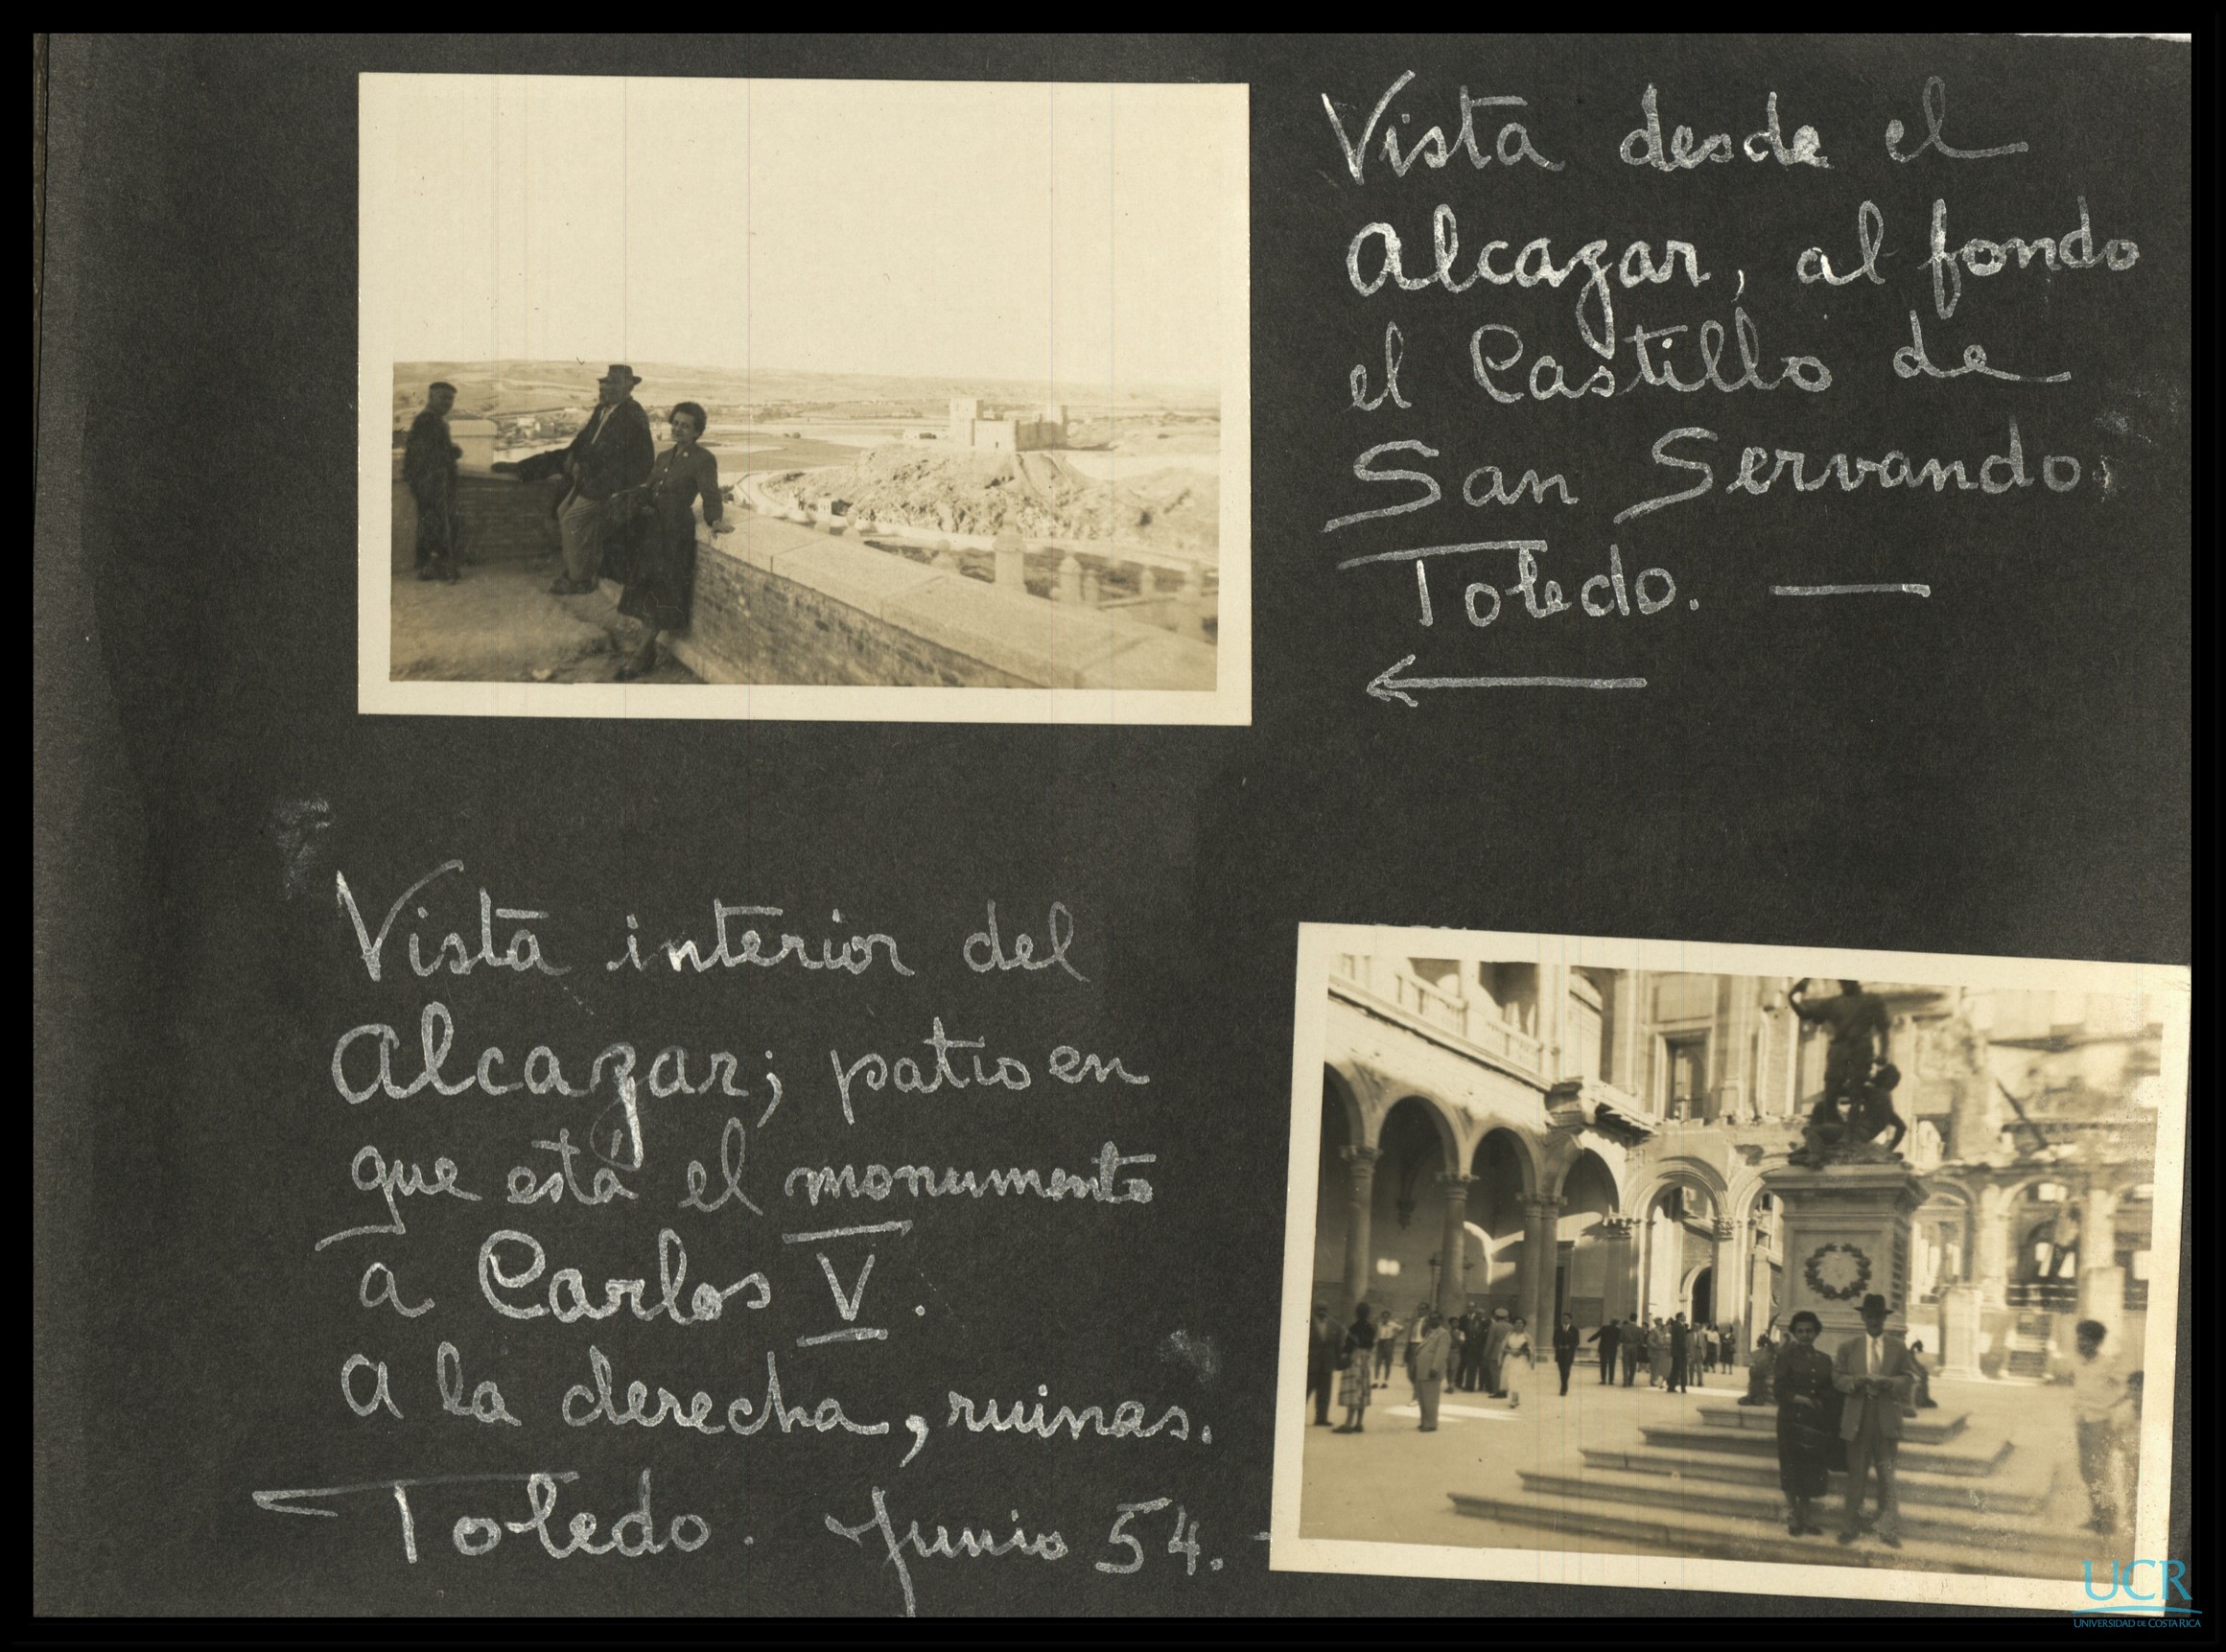 Vista desde el
Alcazar, al fondo
el Castillo de
San Servando.
Toledo. —
Vista interior del
Alcazar; patio en
que está el monumento
a Carlos V.
A la derecha, ruinas.
Toledo. Junio 54. -
UCR
UNIVERSIDAD DE COSTA RICA